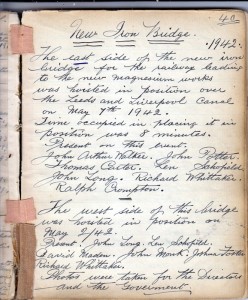 40
New Iron Bridge.
1942.
The east side of the new iron
bridge for the railway leading
to the new magnesium works
was hoisted in position over
the Leeds and Liverpool Canal
on May 1st 1942.
Time occupied in placing it in
position was 8 minutes.
Present on this event,
John Arthur Walker. John Potter.
Thomas Carter. Len Schofield.
John Long. Richard Whittaker.
Ralph Crompton.
The west side of this bridge
was hoisted in position on
May 2/42.
Present. John Long. Len Schofield.
David Mason. John Monk. John Foster
Richard Whittaker.
Photos were taken for the Directors
and the Goverment.